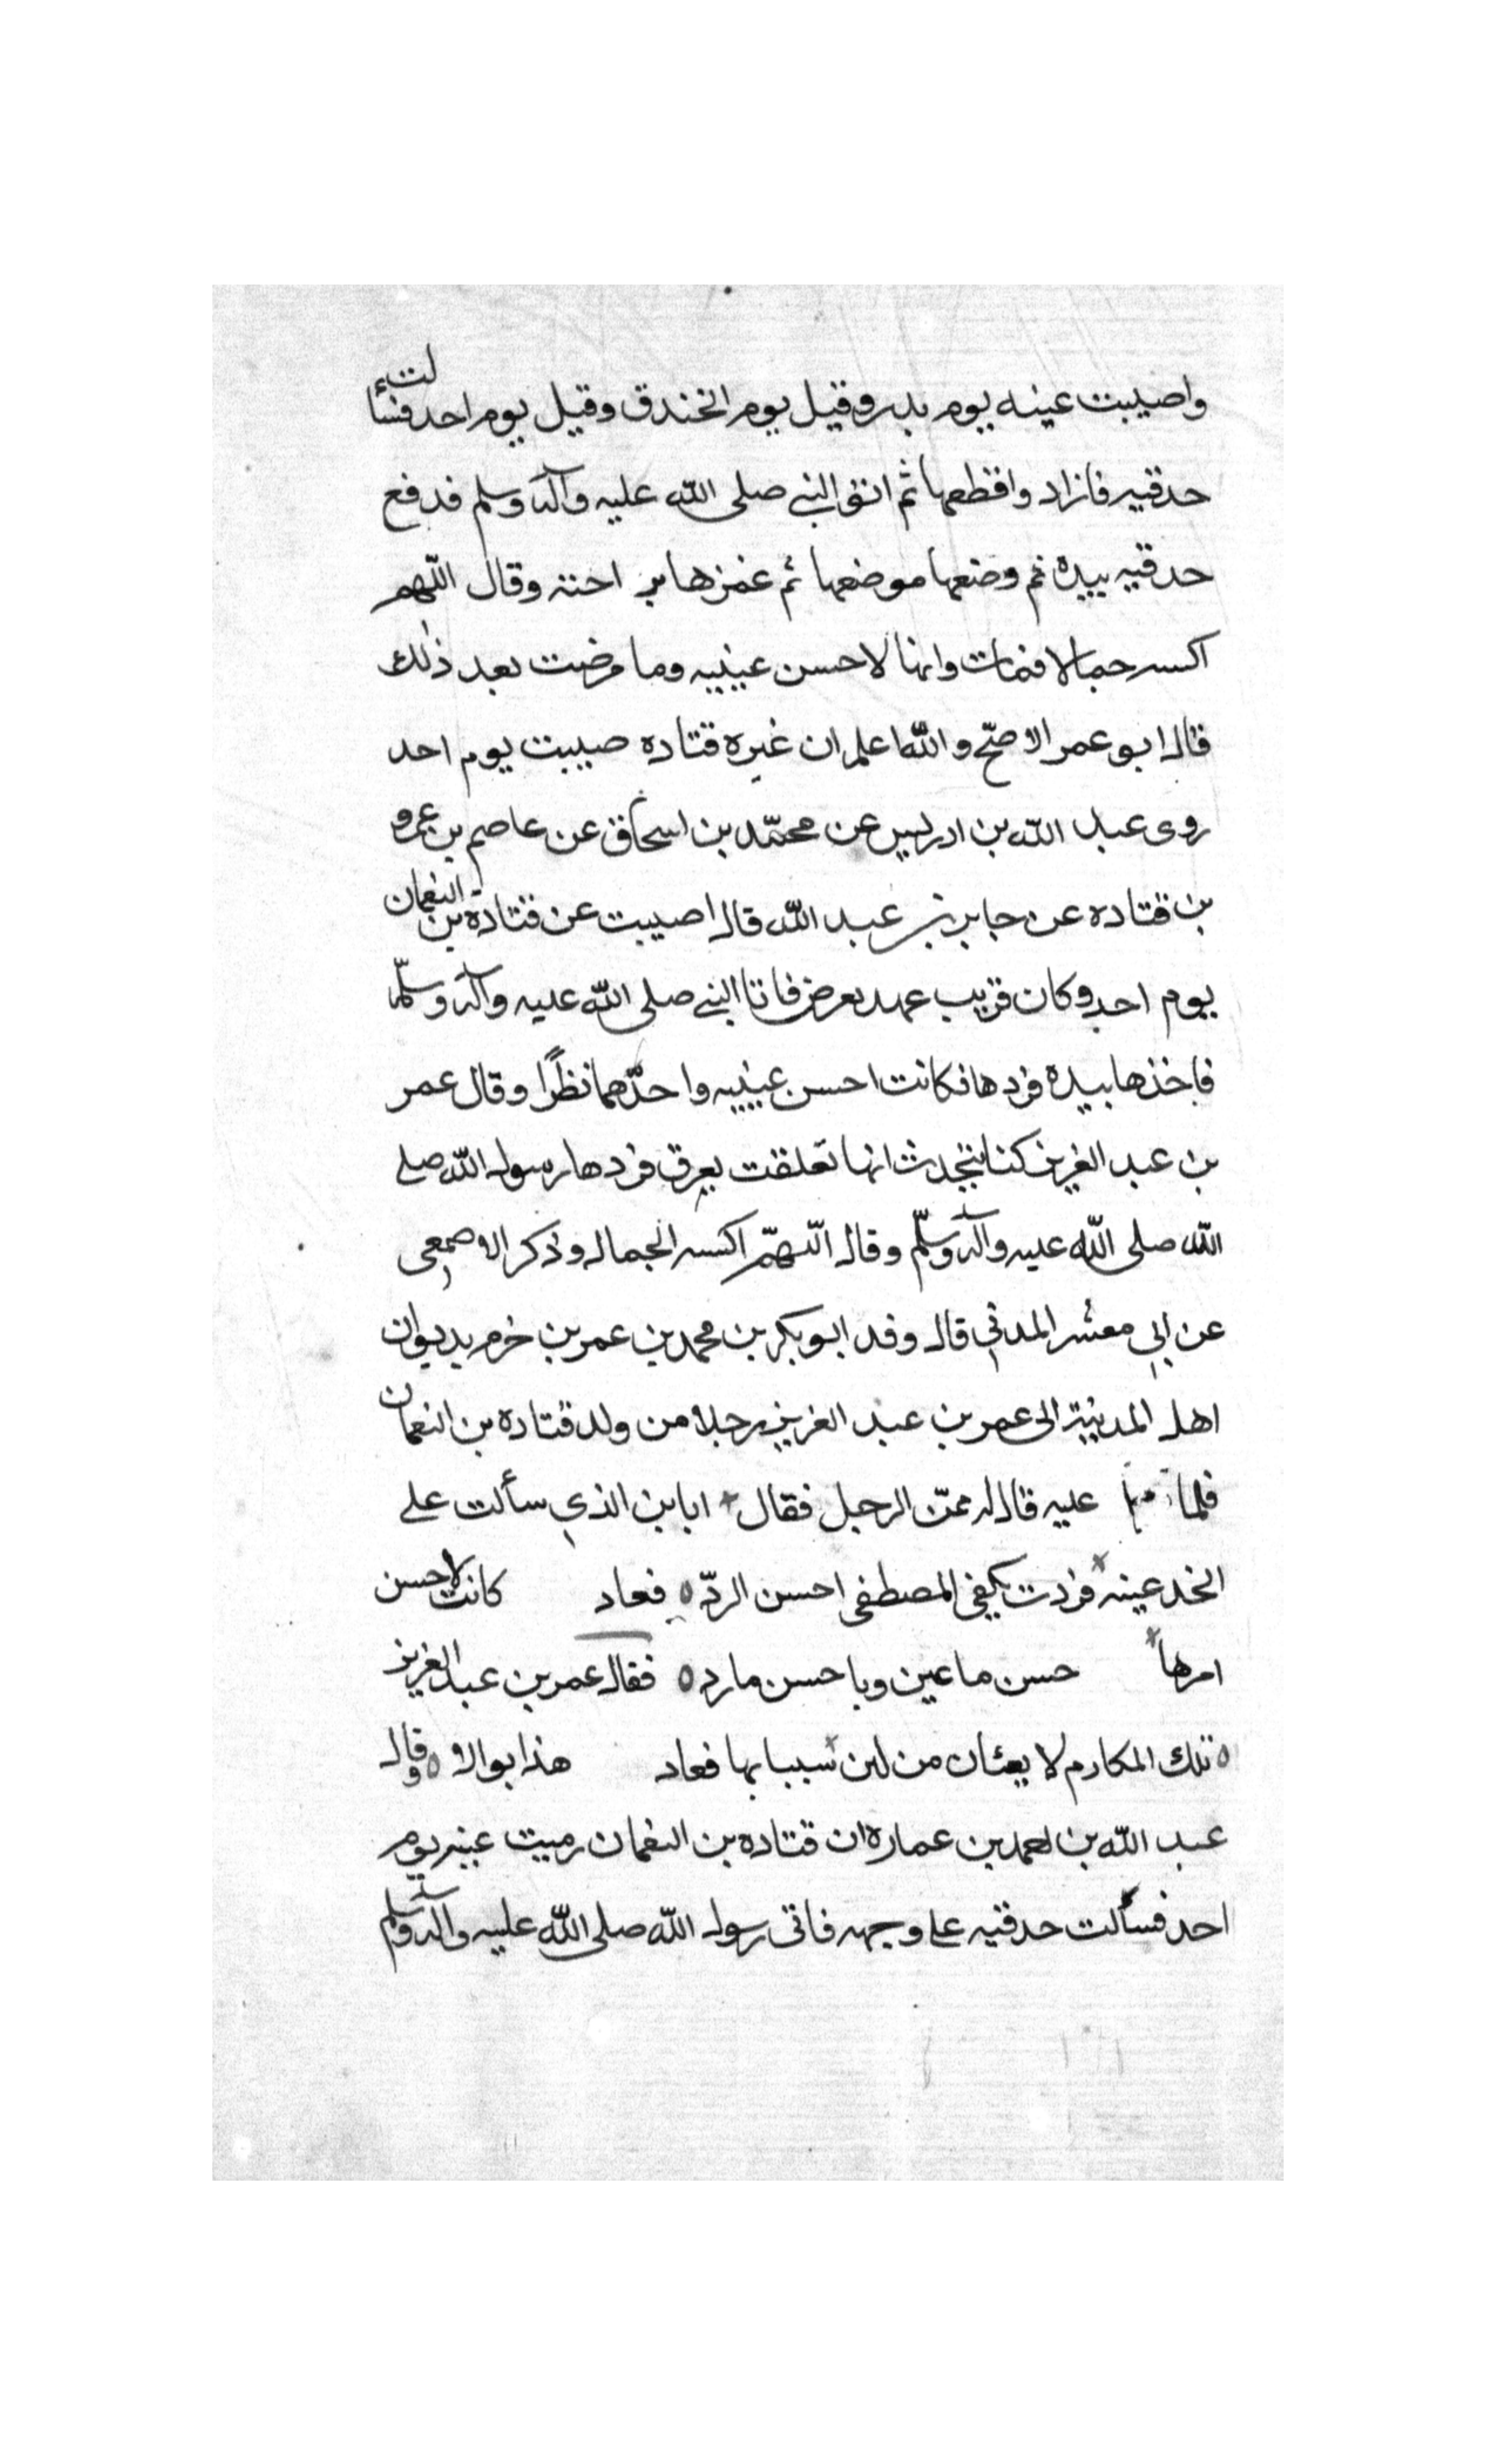 واصيبت عينه يوم بدر وقيل يوم الخندق وقيل يوم احد فسألت
حدقيه فازاد واقطعها ثم اتو النبي صلى الله عليه وآله وسلم فدفع
حدقيه بيده ثم وضعها موضعها ثم غمزها وقال اللهم
اكسه جمالا فمات وانها لاحسن عينيه وما مرضت بعد ذلك
قال ابو عمر الاصح والله اعلم ان قتاده صيبت يوم احد
روى عبد الله بن ادريس عن محمد بن اسحاق عن عاصم بن عمرو
بن قتاده عن جابر بن عبد الله قال اصيبت عن قتاده بن النعمان
يوم احد وكان قريب عهد بعرض فاتا النبي صلى الله عليه وآله وسلم
فاخذها بيده فردها فكانت احسن عينيه واحدهما نظرا وقال عمر
بن عبد العزيز كنا نتحدث انها تعلقت بعرق فردها رسول الله صلى
الله صلى الله عليه وآله وسلم وقال اللهم اكسه الجمال وذكر الاصمعي
عن ابي معشر المدني قال وفد ابو بكر بن محمد بن عمر بن خرم بديوان
اهل المدينة الى عمر بن عبد العزيز رجلا من ولد قتاده بن النعمان
فلما عليه قال له ممن الرجل فقال ابا بن الذي سألت على
الخد عينه فردت بكفي المصطفى احسن الرده فعاد كانت لاحسن
امرها حسن ما عين ويا حسن ما رده فقال عمر بن عبد العزيز
تلك المكارم لا من لبن شيبا بها فعاد هذا وقال
عبد الله بن محمد بن عماره ان قتاده بن النعمان رميت عينه يوم
احد فسألت حدقيه على وجهه فاتى رسول الله صلى الله عليه وآله وسلم